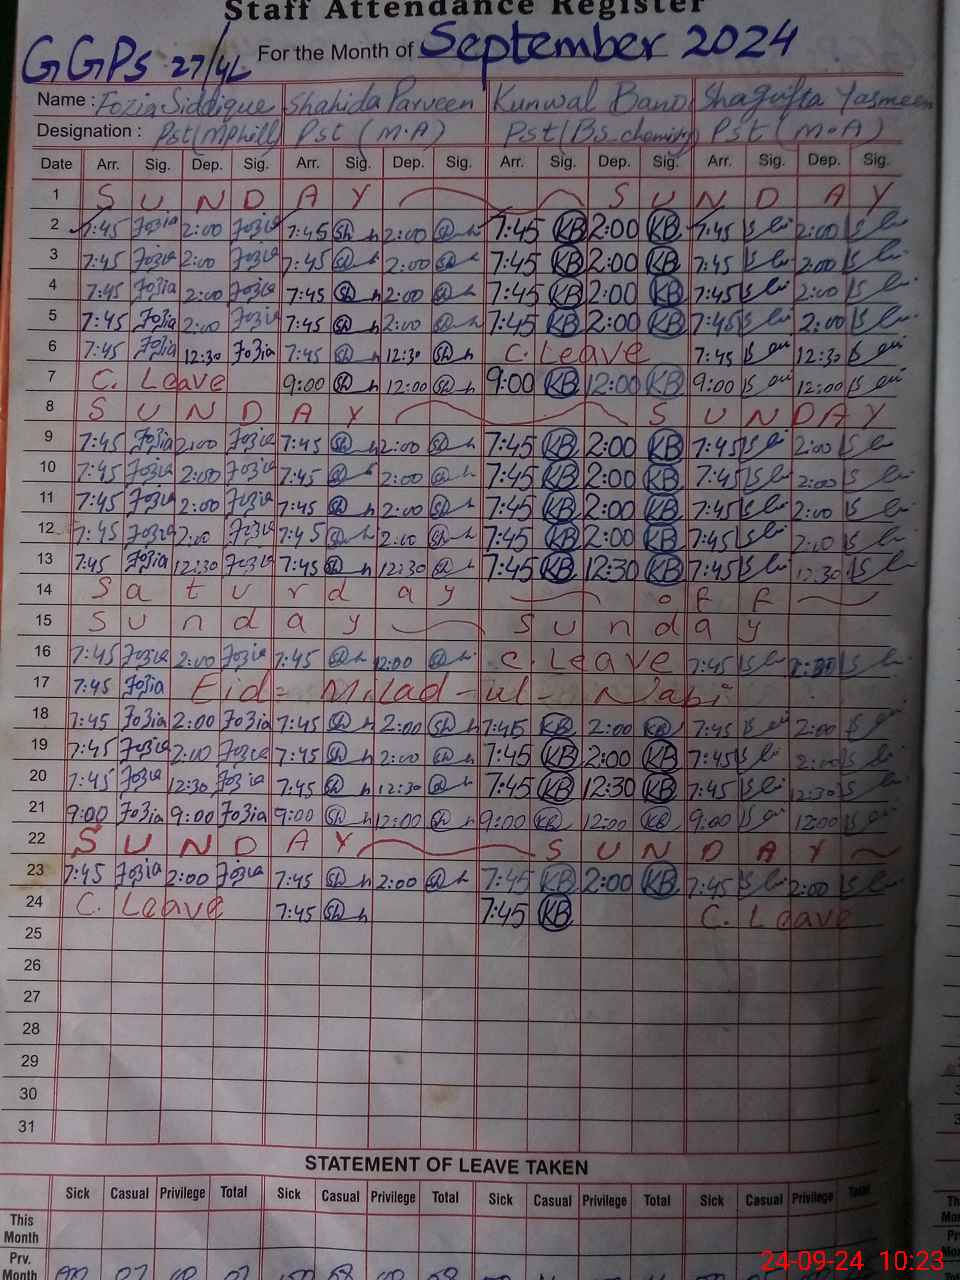 Staff Attendance Register
GGPS 27/4L For the Month of September 2024
Name : Fozia Siddique Shahida Parveen Kunwal Bano Shagufta Yasmeen
Designation : Pst (Mphill) Pst (M.A) Pst (Bs_chemistry) Pst (M.A)
Date Arr. Sig. Dep. Sig. Arr. Sig. Dep. Sig. Arr. Sig. Dep. Sig. Arr. Sig. Dep. Sig.
1 S U N D A Y S U N D A Y
2 7:45 Fozia 2:00 Fozia 7:45 Sh 2:00 7:45 KB 2:00 KB 7:45 2:00
3 7:45 Fozia 2:00 Fozia 7:45 2:00 7:45 KB 2:00 KB 7:45 2:00
4 7:45 Fozia 2:00 Fozia 7:45 2:00 7:45 KB 2:00 KB 7:45 2:00
5 7:45 Fozia 2:00 Fozia 7:45 2:00 7:45 KB 2:00 KB 7:45 2:00
6 7:45 Fozia 12:30 Fozia 7:45 12:30 Sh C. Leave 7:45 12:30
7 C. Leave 9:00 Sh 12:00 9:00 KB 12:00 KB 9:00 12:00
8 S U N D A Y S U N D A Y
9 7:45 Fozia 2:00 Fozia 7:45 2:00 7:45 KB 2:00 KB 7:45 2:00
10 7:45 Fozia 2:00 Fozia 7:45 2:00 7:45 KB 2:00 KB 7:45 2:00
11 7:45 Fozia 2:00 Fozia 7:45 2:00 7:45 KB 2:00 KB 7:45 2:00
12 7:45 Fozia 2:00 Fozia 7:45 2:00 7:45 KB 2:00 KB 7:45 2:00
13 7:45 Fozia 12:30 Fozia 7:45 12:30 7:45 KB 12:30 KB 7:45 12:30
14 S a t u r d a y o f f
15 S u n d a y S u n d a y
16 7:45 Fozia 2:00 Fozia 7:45 2:00 C. Leave 7:45
17 7:45 Fozia Eid = Milad - ul - Nabi
18 7:45 Fozia 2:00 Fozia 7:45 2:00 Sh 7:45 KB 2:00 KB 7:45 2:00
19 7:45 Fozia 2:00 Fozia 7:45 Sh 2:00 7:45 KB 2:00 KB 7:45 2:00
20 7:45 Fozia 12:30 Fozia 7:45 12:30 7:45 KB 12:30 KB 7:45 12:30
21 9:00 Fozia 9:00 Fozia 9:00 Sh 12:00 9:00 KB 12:00 KB 9:00 12:00
22 S U N D A Y S U N D A Y
23 7:45 Fozia 2:00 Fozia 7:45 Sh 2:00 7:45 KB 2:00 KB 7:45 2:00
24 C. Leave 7:45 Sh 7:45 KB C. Leave
25
26
27
28
29
30
31
STATEMENT OF LEAVE TAKEN
Sick Casual Privilege Total Sick Casual Privilege Total Sick Casual Privilege Total Sick Casual Privilege Total
This Month
Prv. Month
24-09-24 10:23